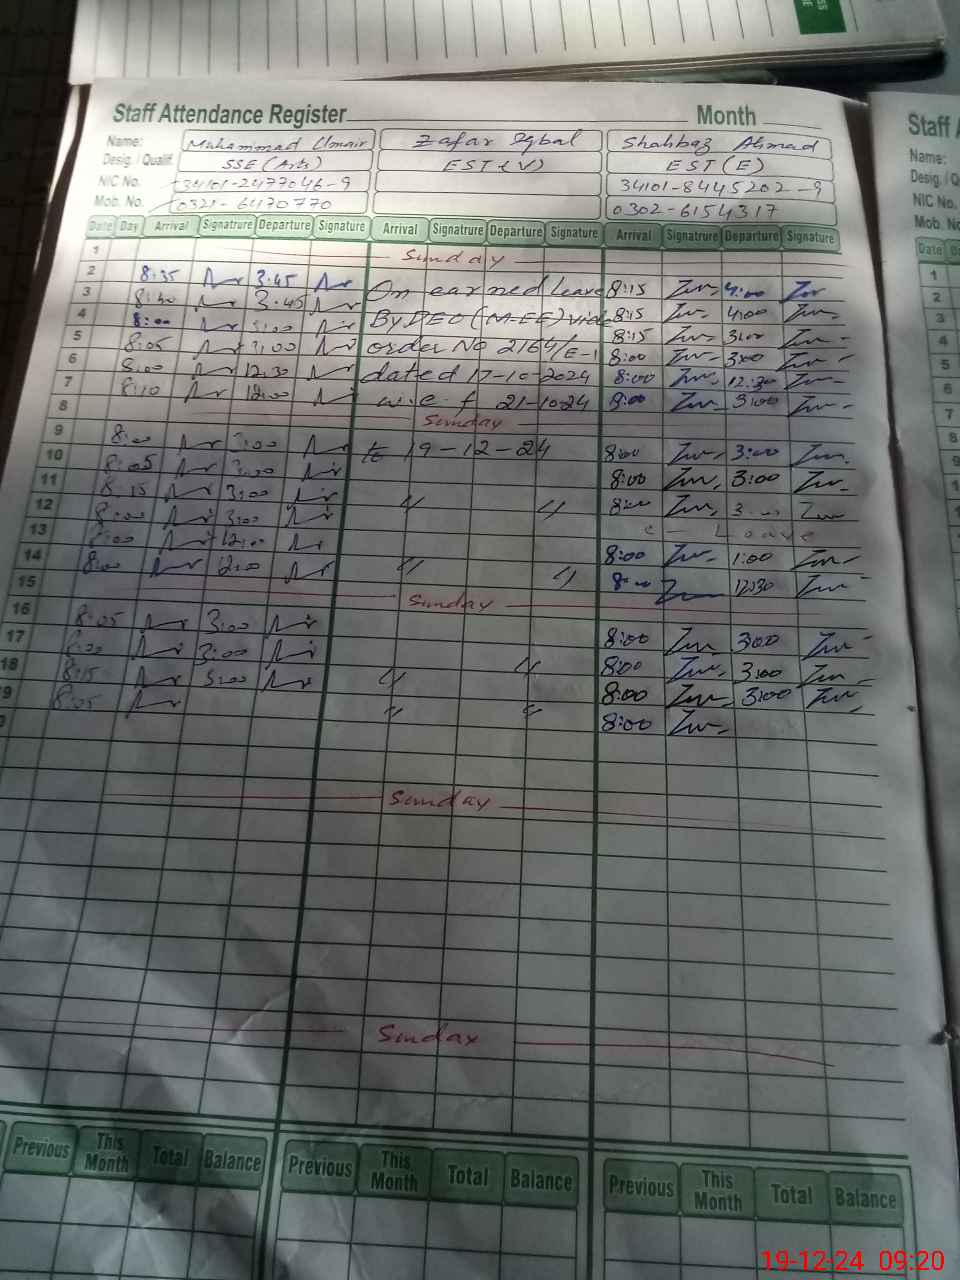 Staff Attendance Register Month
Staff A
Name: Muhammad Umair Zafar Iqbal Shahbaz Ahmad
Name:
Desig. / Qualif. SSE (Arts) EST (V) EST (E)
Desig. / Q
NIC No. 34101-2477046-9 34101-8445202-9
NIC No.
Mob. No. 0321-6470770 0302-6154317
Mob. No
Date Day Arrival Signatrure Departure Signature Arrival Signatrure Departure Signature Arrival Signatrure Departure Signature
Date
1 Sunday
2 8:35 3:45 On earned leave 8:15 4:00
3 8:40 3:45 By DEO (M-EE) vide 8:15 4:00
4 8:00 3:00 order No 2164/E-1 8:15 3:00
5 8:05 3:00 dated 17-10-2024 8:00 3:00
6 8:00 12:30 w.e.f 21-10-24 8:00 12:30
7 8:10 12:00 8:00 3:00
8 Sunday
9 8:00 3:00 to 19-12-24 8:00 3:00
10 8:05 3:00 8:00 3:00
11 8:15 3:00 " " 8:00 3:00
12 8:00 3:00 c Leave
13 8:00 12:00 8:00 1:00
14 8:00 12:00 " " 8:00 12:30
15 Sunday
16 8:05 3:00 8:00 3:00
17 8:00 3:00 " 8:00 3:00
18 8:15 3:00 " 8:00 3:00
9 8:05 " " 8:00
Sunday
Sunday
Previous This Month Total Balance Previous This Month Total Balance Previous This Month Total Balance
1
2
3
4
5
6
7
8
9
19-12-24 09:20